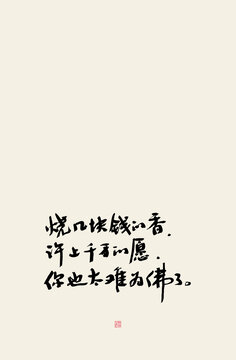 烧几块钱的香，
许上千万的愿，
你也太难为佛了。